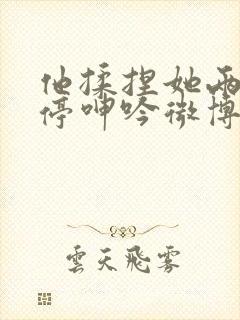 他揉捏她两
停呻吟微博
雲天飛霧